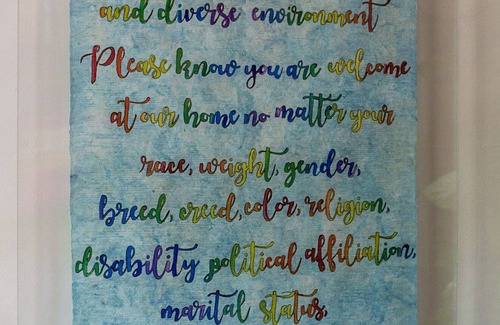 and diverse environment
Please know you are welcome
at our home no matter your
race, weight, gender,
breed, creed, color, religion,
disability political affiliation,
marital status,